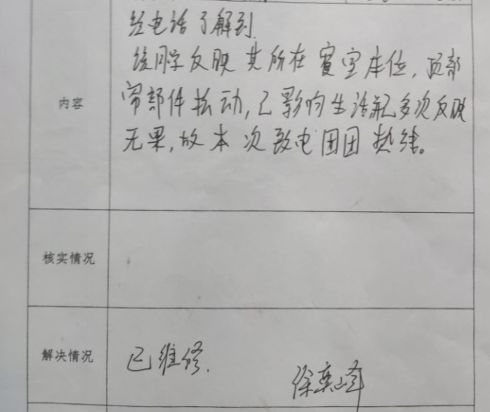 经电话了解到
该同学反映其所在寝室床位,顶部
帘部件松动,已影响生活且多次反映
无果,故本次致电团团热线。
内容
核实情况
解决情况
已维修.
徐栾峰